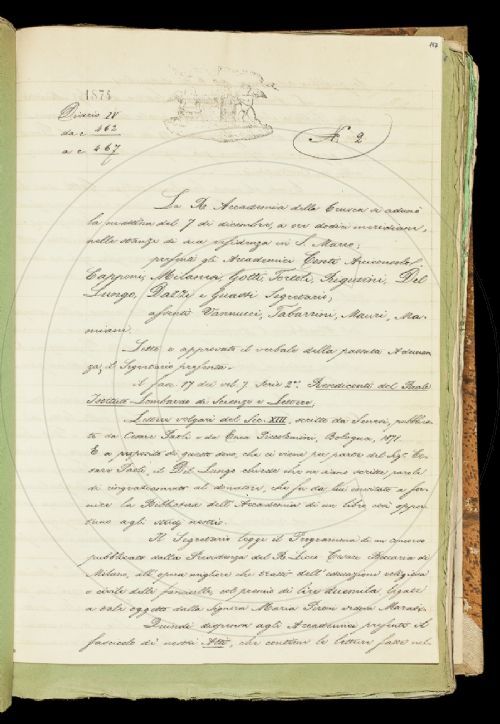 147
1874
Diario IV
da c 462
a c 467
N. 2
La R. Accademia della Crusca si adunò
la mattina del 7 di dicembre, a ore dodici meridiane,
nelle stanze di sua residenza in S. Marco;
presenti gli Accademici Conti Arciconsolo
Capponi, Milanesi, Gotti, Tortoli, Rigutini, Del
Lungo, Dazzi e Guasti Segretario;
assenti Vannucci, Tabarrini, Mauri, Ma-
miani.
Letto e approvato il verbale della passata Adunan-
za, il Segretario presenta
il fasc. 17 del vol. 7. Serie 2ª. Rendiconti del Reale
Istituto Lombardo di Scienze e Lettere;
Lettere volgari del Sec. XIII, scritte da Senesi, pubblica-
te da Cesare Paoli e da Enea Piccolomini, Bologna, 1871.
E a proposito di questo dono, che ci viene per parte del Sig. Ce-
sare Paoli, il Del Lungo chiese che ne siano scritte parole
di ringraziamento al donatore, che fu da lui invitato a for-
nire la Biblioteca dell'Accademia di un libro così oppor-
tuno agli studj nostri.
Il Segretario legge il Programma di un concorso
pubblicato dalla Presidenza del R. Liceo Cesare Beccaria di
Milano, all'opera migliore che tratti dell'educazione religiosa
e civile delle fanciulle, col premio di lire duemila legate
a tale oggetto dalla Signora Maria Piron vedova
Quindi dispensa agli Accademici presenti il
fascicolo di nostri Atti, che contiene le letture fatte nel-